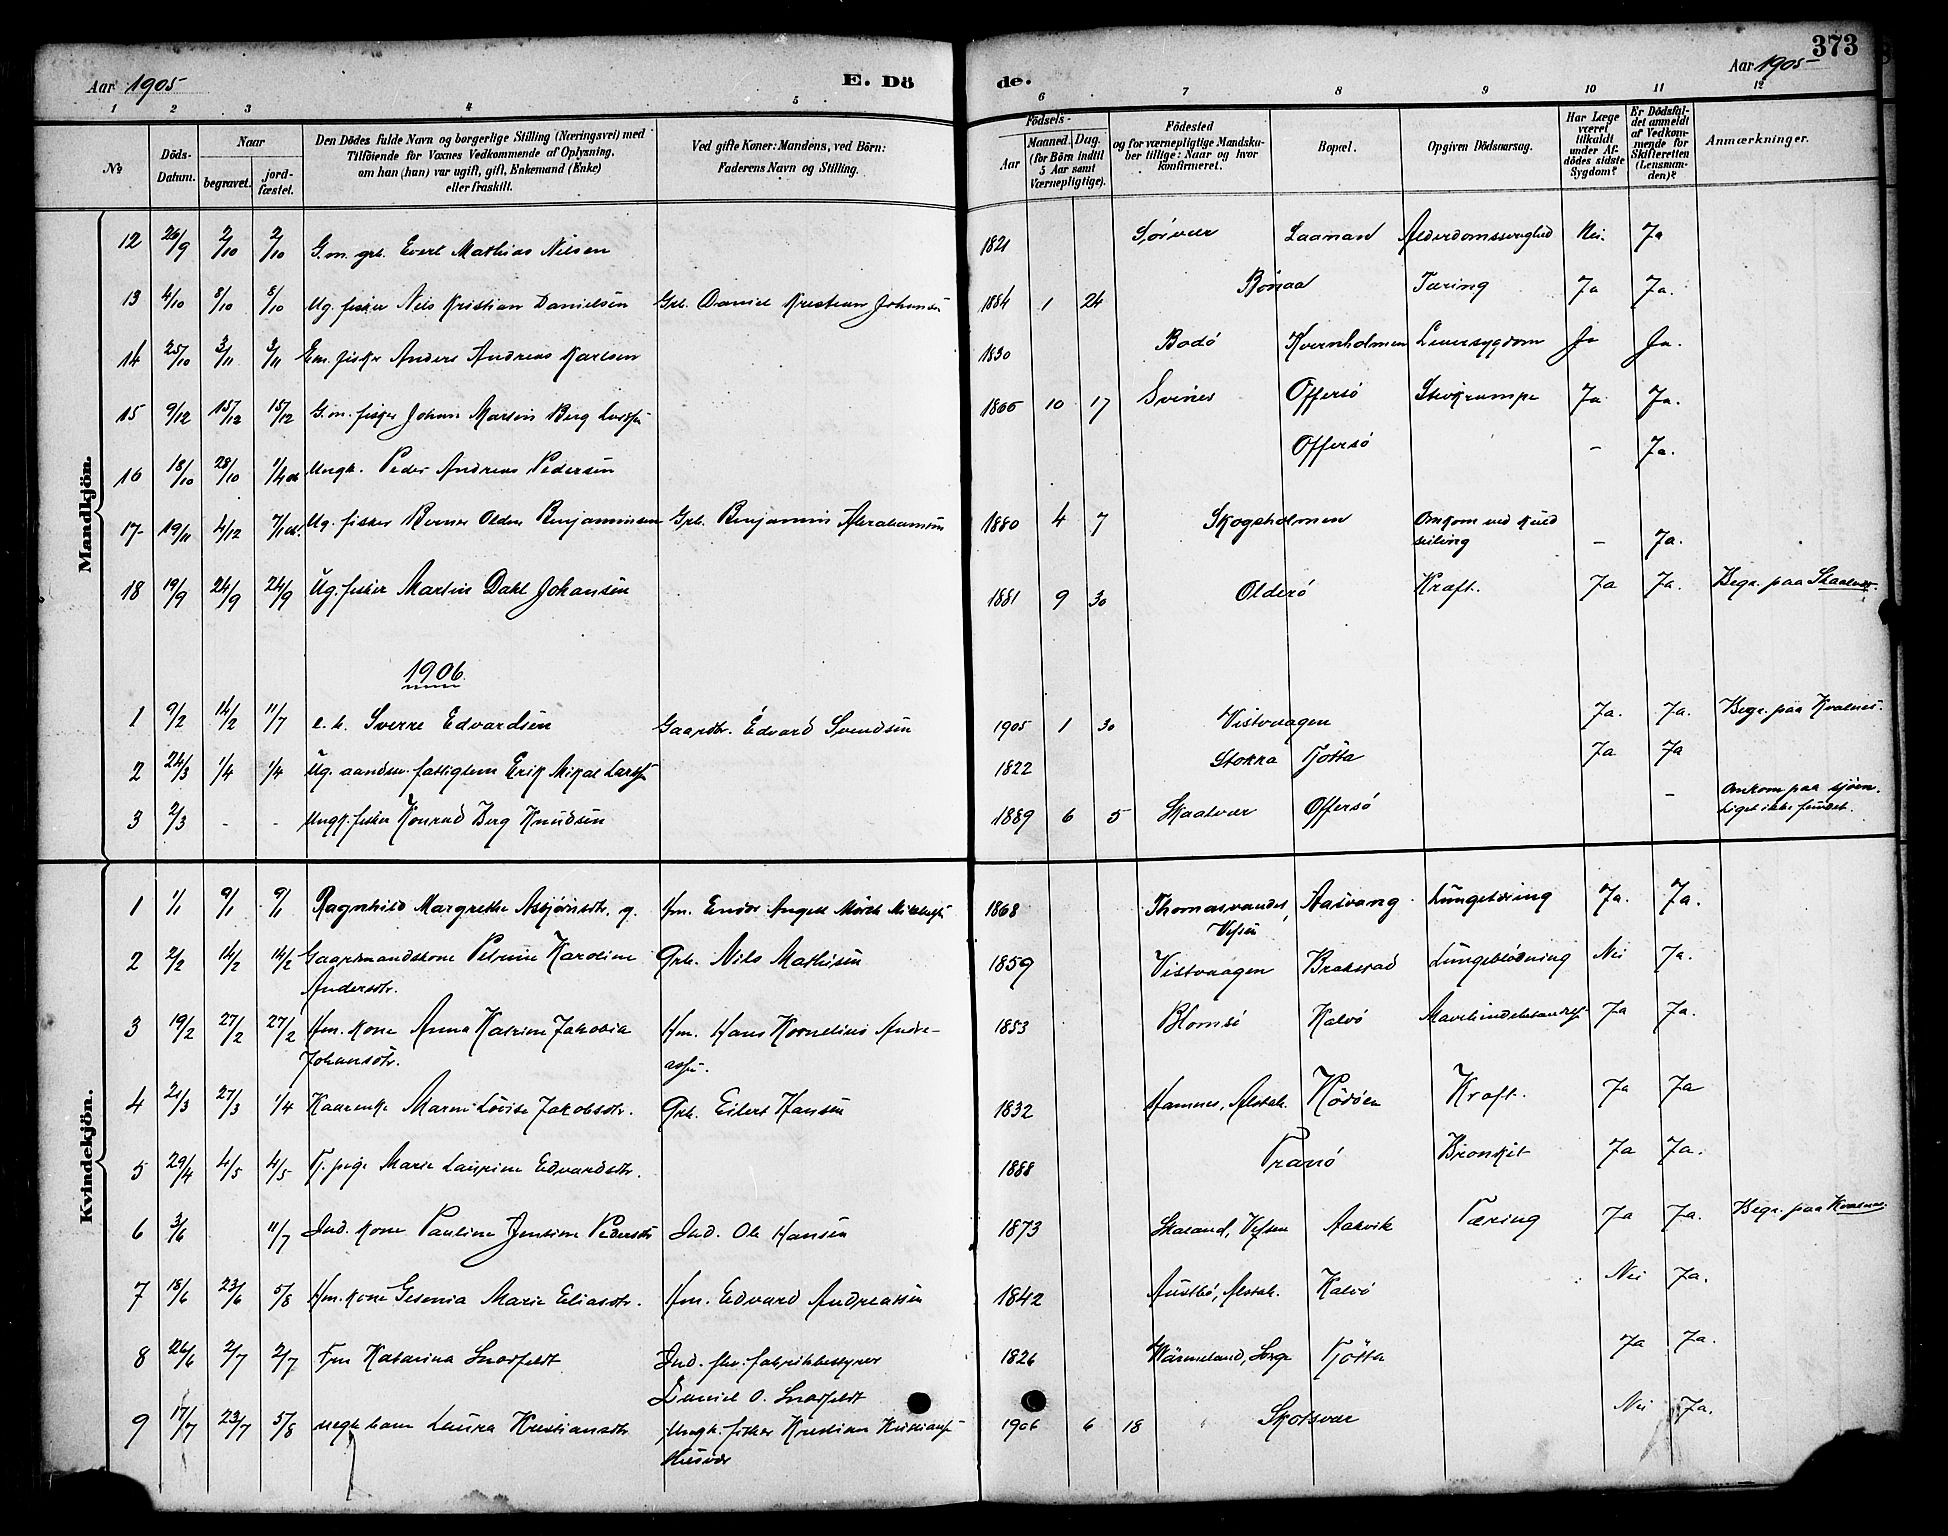 373
Aar 1905
E. Dö
de.
Aar 1905
1 2 3 4 5 6 7 8 9 10 11 12
№
Döds-
Datum.
Naar
begravet.
jord-
fæstet.
Den Dödes fulde Navn og borgerlige Stilling (Næringsvei) med
Tilföiende for Voxnes Vedkommende af Oplysning,
om han (hun) var ugift, gift, Enkemand (Enke)
eller fraskilt.
Ved gifte Koner: Mandens, ved Börn:
Faderens Navn og Stilling.
Födsels-
Aar
Maaned. Dag.
(for Börn indtil
5 Aar samt
Værnepligtige).
Födested
og for værnepligtige Mandsku-
ber tillige: Naar og hvor
konfirmeret.
Bopæl.
Opgiven Dödsaarsag.
Har Læge
været
tilkaldt
under Af-
dödes sidste
Sygdom?
Er Dödsfal-
det anmeldt
af Vedkom-
mende for
Skifteretten
(Lensman-
den)?
Anmærkninger.
Mandkjön.
12 26/9 2/10 2/10 G.m. grb. Evert Mathias Nilsen 1821 Sørvær Laanan Alderdomssvaghed Nei. Ja
13 4/10 8/10 8/10 Ug. fisker Nils Kristian Danielsen Grb. Daniel Kristian Johansen 1884 1 24 Tæring Ja Ja.
14 25/10 3/11 3/11 Em. fisker Anders Andreas Karlsen 1830 Bodö Kvernholmen Leversygdom Ja Ja.
15 9/12 15/12 15/12 G.m. fisker Johan Martin Berg 10 17 Svines Offersö Ja Ja.
16 18/10 28/10 Ungk. Peder Andreas Pedersen Offersö - Ja.
17 19/11 4/12 Ug. fisker Olden Benjaminsen Grb. Benjamin Abrahamsen 1880 4 7 Skogsholmen Omkom ved kuld
seiling - Ja.
18 19/9 24/9 24/9 Ug. fisker Martin Dahl Johansen 1881 9 30 Olderö Kræft. Ja Ja. Begr. paa Skaalvær.
1906
1 9/2 14/2 11/7 e. b. Sverre Edvardsen Gaardbr. Edvard Svendsen 1905 1 30 Vistvaagen Ja. Ja. Begr. paa Kvalnes.
2 24/3 1/4 1/4 Ug. aandssv. fattiglem Erik Mikal 1822 Stokka Tjötta Ja Ja
3 2/3 - - Ungk. fisker Konrad Berg Knudsen 1889 6 5 Skaalvær Offersö - Omkom paa sjøen.
Liget ikke fundet.
Kvindekjön.
1 1/1 9/1 9/1 Ragnhild Margrethe Asbjörnsdtr. g. Hm. Angell Mörch 1868 Thomasvandet,
Vefsen Aasvang Lungetæring Ja. Ja.
2 2/2 14/2 14/2 Gaardmandskone Petrine Karoline
Andersdtr. Grb. Nils Mathisen 1859 Vistvaagen Lungeblødning Nei Ja.
3 19/2 27/2 27/2 Hm. kone Anna Katrine Jakobia
Johansdtr. Hm. Hans Kornelius Andre-
assen. 1853 Blomsö Kalvö Ja Ja.
4 21/3 27/3 1/4 Kaarenke Maren Lovise Jakobsdtr. Grb. Eilert Hansen 1832 Hamnes, Alstah. Rödöen Kræft. Ja Ja
5 29/4 4/5 4/5 Tj. pige Marie Laurine Edvardsdtr. 1888 Tranö Bronkit Ja Ja.
6 3/6 11/7 Ind. kone Pauline Jensine Pedersdtr Ind. Ole Hansen 1873 Skaland, Vefsen Aakvik Tæring Ja Ja. Begr. paa Kvalnes.
7 18/6 23/6 5/8 Hm. kone Gesenia Marie Eliasdtr. Hm. Edvard Andreassen 1842 Austbö, Alstah. Kalvö Nei Ja.
8 26/6 2/7 2/7 Katarina Snöfeldt Ind. fhv. fabrikbestyrer
Daniel O. Snöfeldt 1826 Wärmeland, Tjötta Ja Ja.
9 17/7 23/7 5/8 uegte barn Laura Kristiansdtr Ungk. fisker Kristian
Husvær 1906 6 18 Skotsvær Nei Ja.